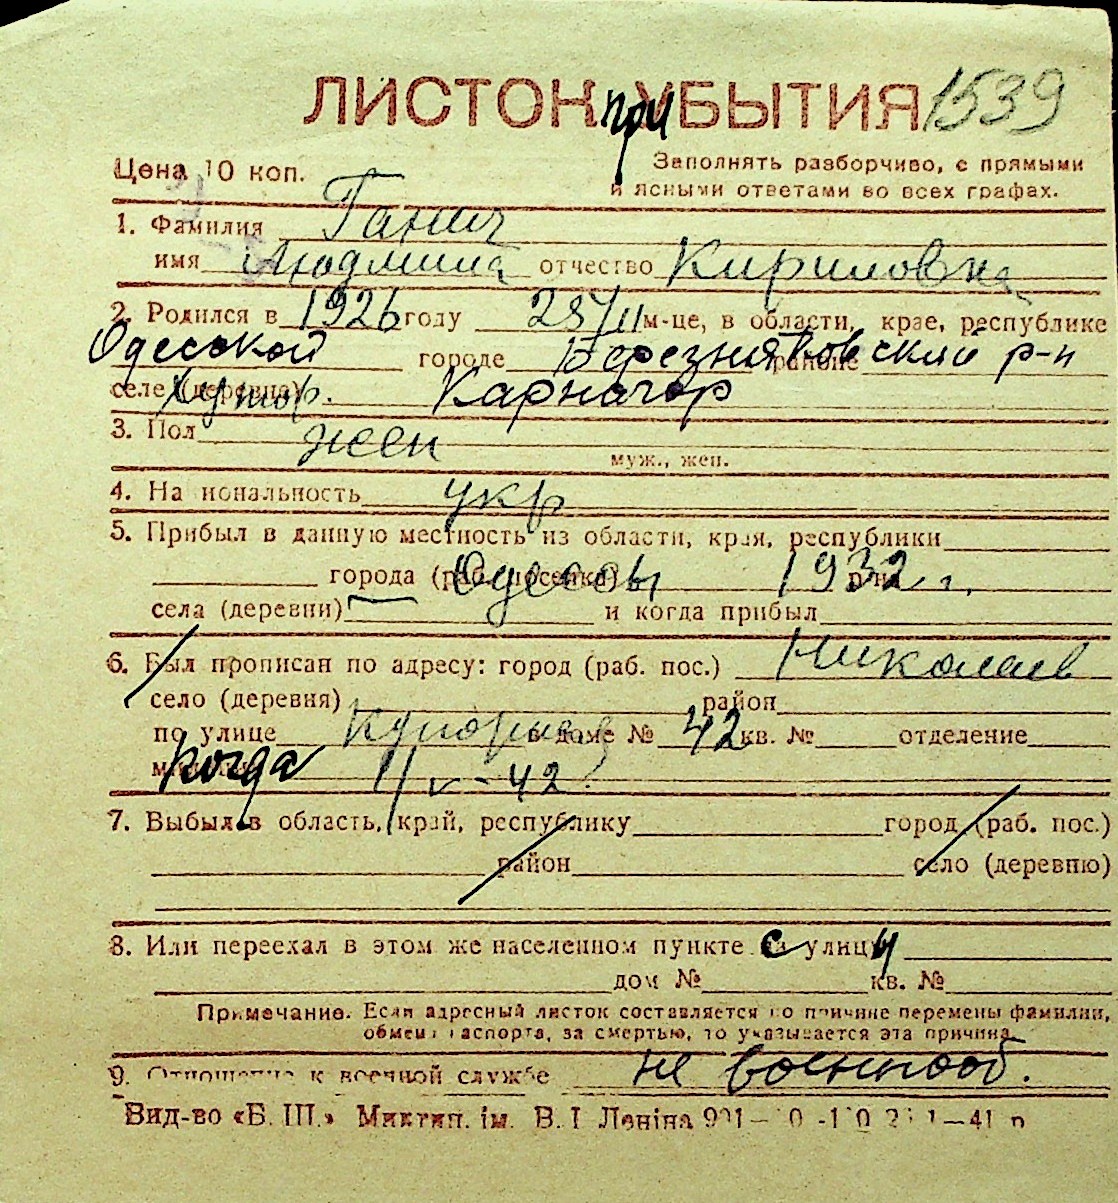 ЛИСТОК при УБЫТИЯ 1539
Цена 10 коп. Заполнять разборчиво, с прямыми
и ясными ответами во всех графах.
1. Фамилия Ганич
имя Людмила отчество Кириловна
2. Родился в 1926 году 25/III м-це, в области, крае, республике
Одесской городе Березняковский р-н районе
селе (деревня) хутор. Карначор
3. Пол жен
муж., жен.
4. Национальность укр
5. Прибыл в данную местность из области, края, республики
города (раб. поселка) Одессы 1932 г.
села (деревни) — и когда прибыл
6. Был прописан по адресу: город (раб. пос.) Николаев
село (деревня) район
по улице в доме № 42 кв. № отделение
когда 1/V-42
7. Выбыл в область, край, республику город (раб. пос.)
район село (деревню)
8. Или переехал в этом же населенном пункте с улицы
дом № кв. №
Примечание. Если адресный листок составляется по причине перемены фамилии,
обмена паспорта, за смертью, то указывается эта причина.
9. Отношение к военной службе не военнооб.
Вид-во «Б. Ш.» Миктип. ім. В. І Леніна